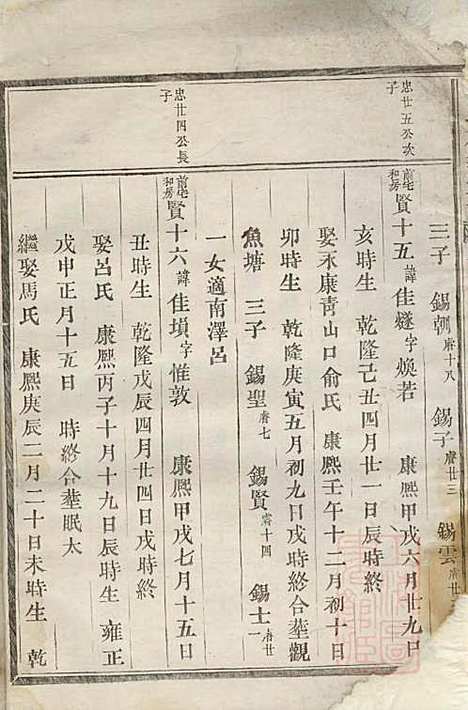 三子 錫朝 睿十八 錫子 睿廿三 錫雲 睿廿
忠廿五公次子
前宅和房 賢十五 諱佳燧字煥若 康熙甲戌六月廿九日
亥時生 乾隆己丑四月廿一日辰時終
娶永康青山口俞氏 康熙壬午十二月初十日
卯時生 乾隆庚寅五月初九日戌時終合塟觀
魚塘 三子 錫聖 睿七 錫賢 睿十四 錫士 睿廿一
一女適南澤呂
忠廿四公長子
前宅和房 賢十六 諱佳塤字惟敦 康熙甲戌七月十五日
丑時生 乾隆戊辰四月廿四日戌時終
娶呂氏 康熙丙子十月十九日辰時生 雍正
戊申正月十五日 時終合塟眠太
繼娶馬氏 康熙庚辰二月二十日未時生 乾